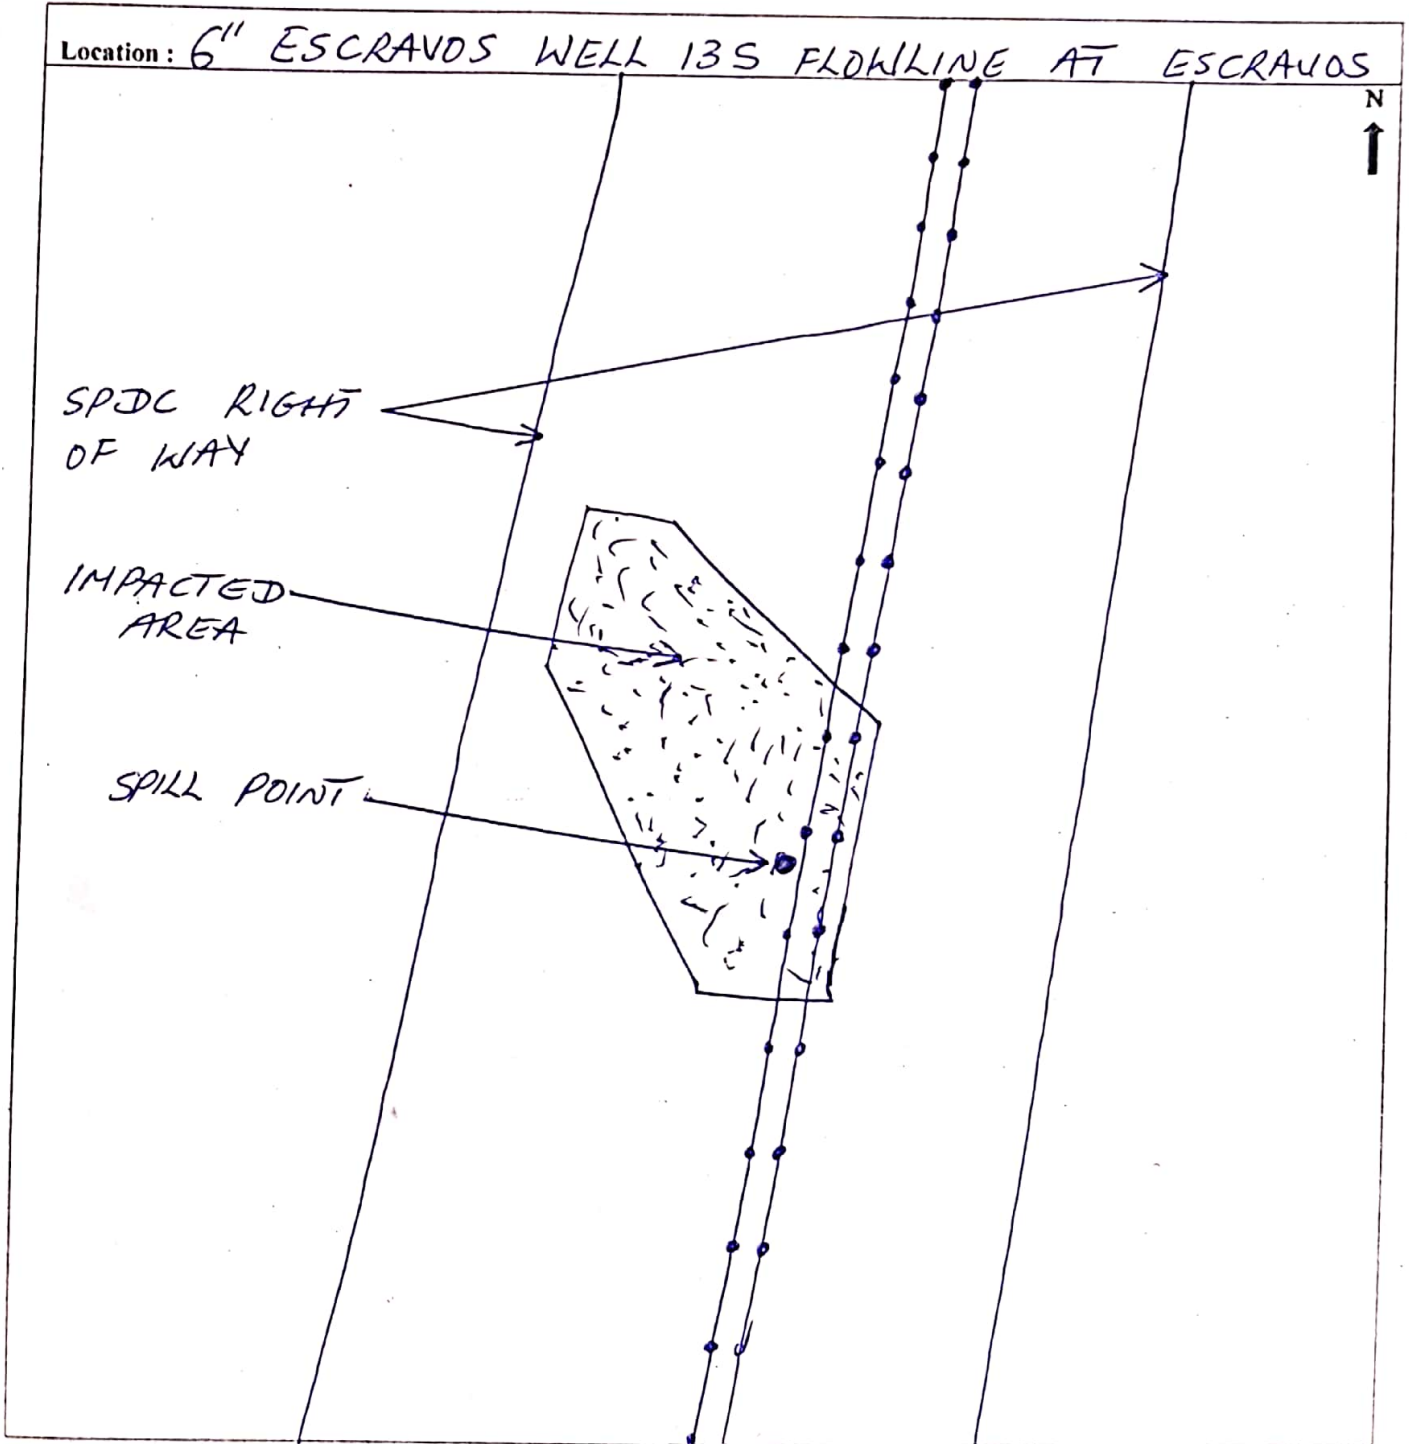 Location : 6" ESCRAVOS WELL 13S FLOWLINE AT ESCRAVOS
N
SPDC RIGHT
OF WAY
IMPACTED
AREA
SPILL POINT